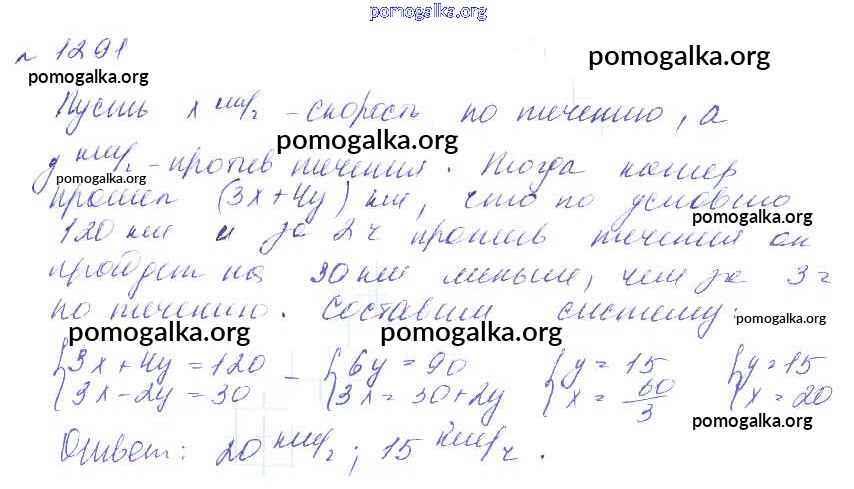 pomogalka.org
№ 1291
pomogalka.org
pomogalka.org
Пусть x км/ч - скорость по течению, а
pomogalka.org
y км/ч - против течения. Тогда катер
pomogalka.org
прошел (3x+4y) км, что по условию
pomogalka.org
120 км и за 2 ч против течения он
пройдет на 30 км меньше, чем за 3 ч
по течению. Составим систему:
pomogalka.org
pomogalka.org
pomogalka.org
{3x+4y=120 {6y=90 {y=15 {y=15
{3x-2y=30 - {3x=30+2y {x=60/3 {x=20
pomogalka.org
Ответ: 20 км/ч; 15 км/ч.